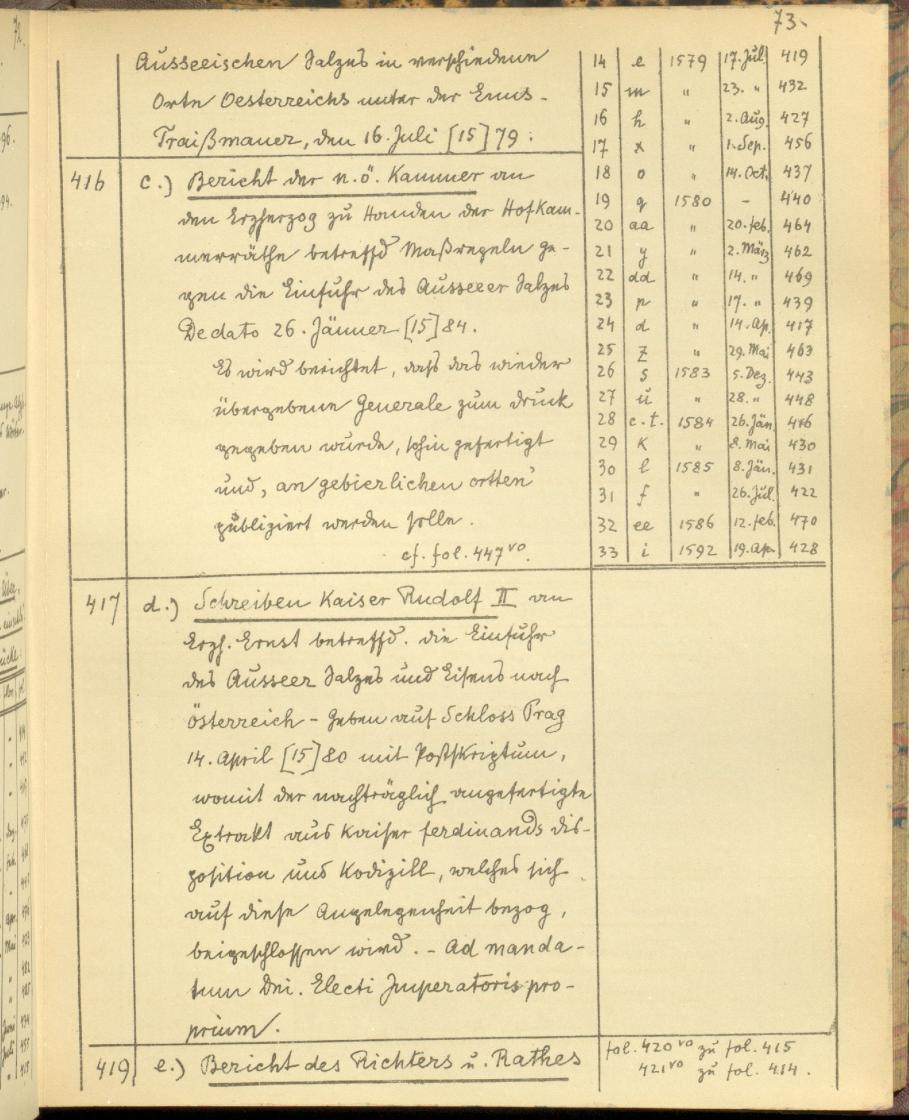 73.
Ausseeischen Salzes in verschiedene
Orte Oesterreichs unter der Enns.
Traißmauer, den 16. Juli [15]79.
416 c.) Bericht der n.ö. Kammer an
den Erzherzog zu Handen der Hofkam-
merräthe betreffd Maßregeln ge-
gen die Einfuhr des Ausseeer Salzes
De dato 26. Jänner [15]84.
Es wird berichtet, dass das wieder
übergebene Generale zum druck
gegeben wurde, schin gefertigt
und, an gebierlichen ortten'
publiziert werden solle.
cf. fol. 447vo.
417 d.) Schreiben Kaiser Rudolf II an
Erzh. Ernst betreffd. die Einfuhr
des Ausseer Salzes und Eisens nach
Österreich - Geben auf Schloss Prag
14. April [15]80 mit Postskriptum,
womit der nachträglich angefertigte
Extrakt aus Kaiser Ferdinands dis-
position und Kodizill, welches sich
auf diese Angelegenheit bezog,
beigeschlossen wird. - Ad manda-
tum Dni. Electi Imperatoris pro-
prium.
419 e.) Bericht des Richters u. Rathes
14 e 1579 17. Jul. 419
15 m " 23. " 432
16 h " 2. Aug. 427
17 x " 1. Sep. 456
18 o " 14. Oct. 437
19 q 1580 - 440
20 aa " 20. feb. 464
21 y " 2. März 462
22 dd " 14. " 469
23 p " 17. " 439
24 d " 14. Ap. 417
25 z " 29. Mai 463
26 s 1583 5. Dez. 443
27 u " 28. " 448
28 c. t. 1584 26. Jän 446
29 k " 8. Mai 430
30 l 1585 8. Jän. 431
31 f " 26. Jul. 422
32 ee 1586 12. feb. 470
33 i 1592 19. Ap. 428
fol. 420vo zu fol. 415
421vo zu fol. 414.